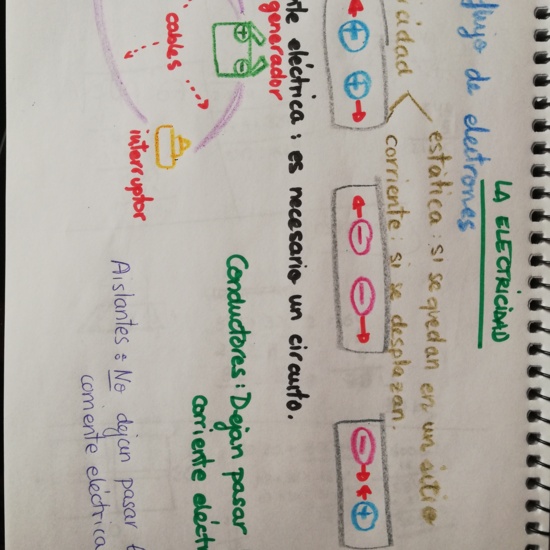 LA ELECTRICIDAD
flujo de electrones
estática: si se quedan en un sitio
corriente: si se desplazan.
+ + - - - +
eléctrica: es necesario un circuito.
generador
+ -
cables
interruptor
Conductores: Dejan pasar
corriente
Aislantes: No dejan pasar
corriente eléctrica